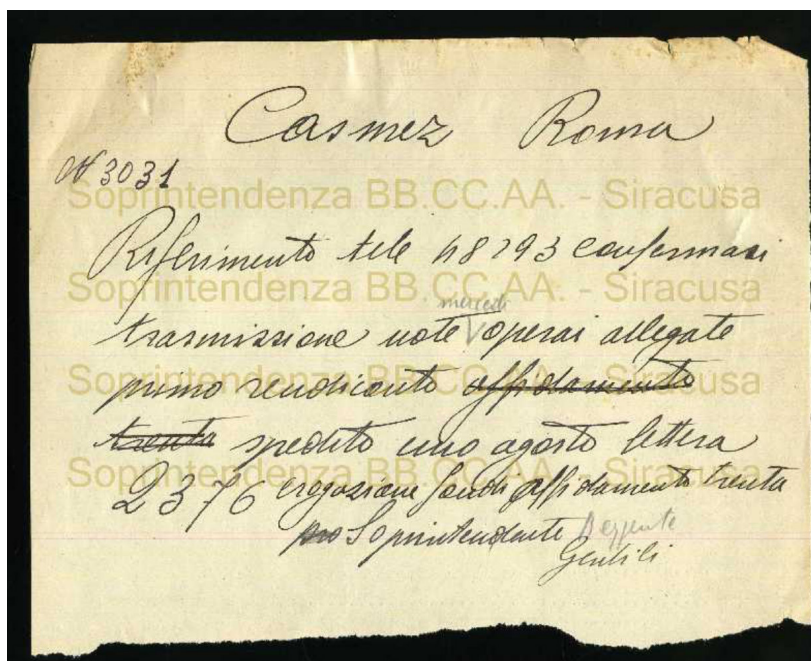 Casmez Roma
N 3031
Soprintendenza BB.CC.AA. - Siracusa
Riferimento tele 48293 confermasi
Soprintendenza BB.CC.AA. - Siracusa
mercedi
trasmissione note operai allegate
primo rendiconto affidamento
Soprintendenza BB.CC.AA. - Siracusa
trenta spedito uno agosto lettera
Soprintendenza BB.CC.AA. - Siracusa
2376 erogazione fondi affidamento trenta
pro Soprintendente Reggente
Gentili